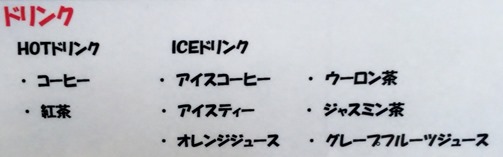 ドリンク
HOTドリンク
・ コーヒー
・ 紅茶
ICEドリンク
・ アイスコーヒー
・ アイスティー
・ オレンジジュース
・ ウーロン茶
・ ジャスミン茶
・ グレープフルーツジュース